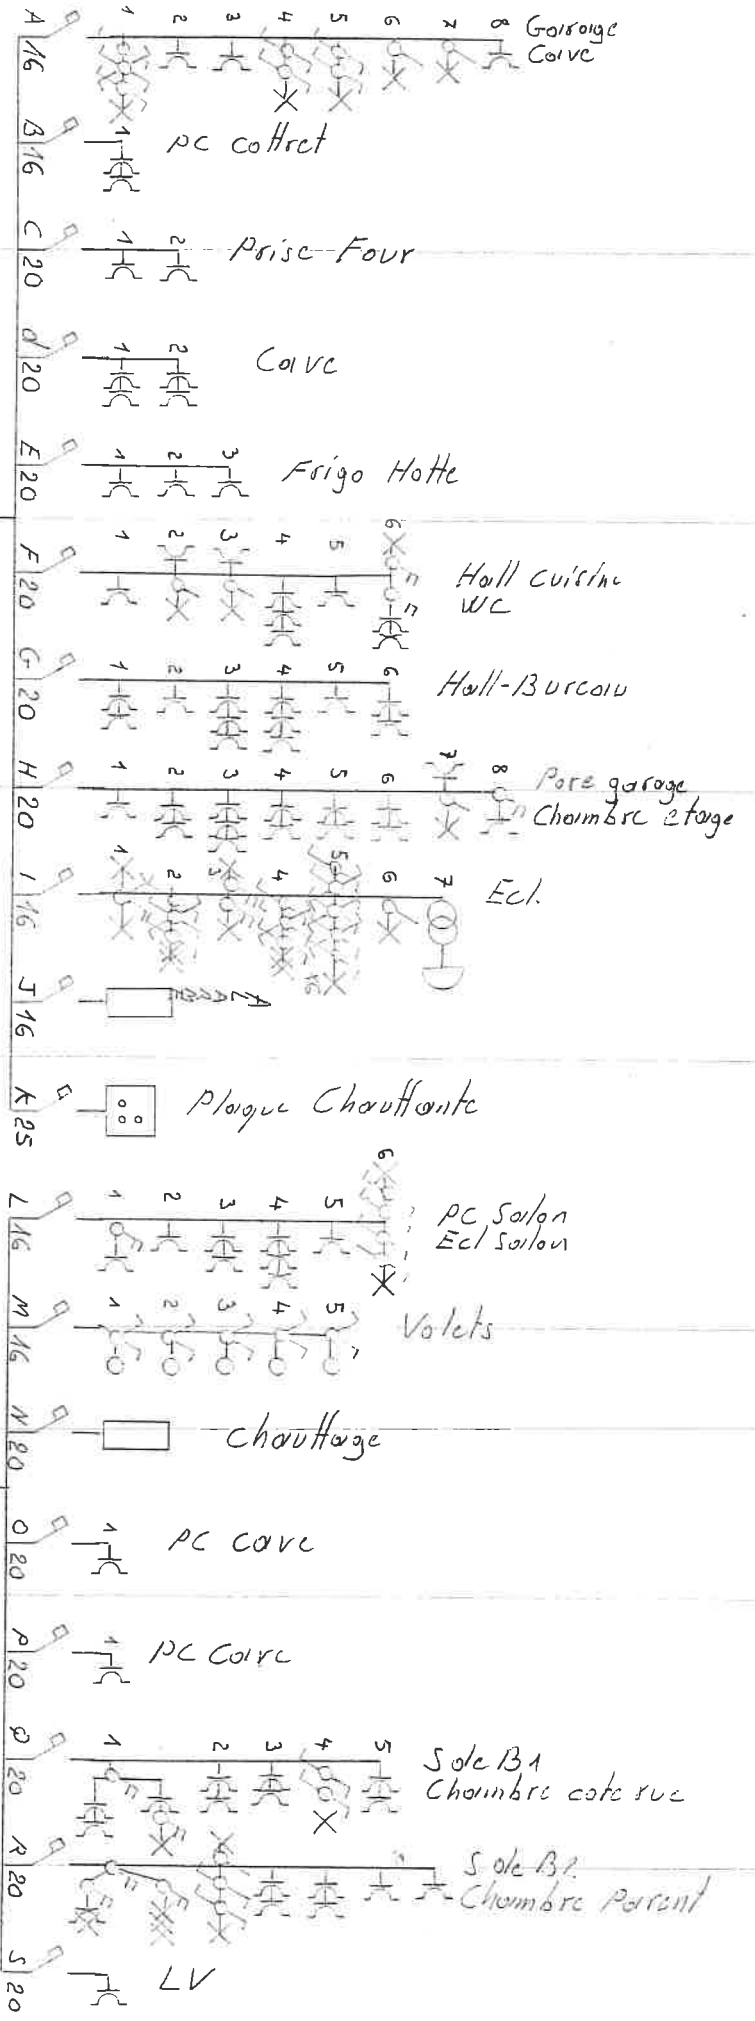 A 16
1 2 3 4 5 6 7 8
Garage
Cave
B 16
1
PC coffret
C 20
1 2
Prise Four
d 20
1 2
Cave
E 20
1 2 3
Frigo Hotte
F 20
1 2 3 4 5 6
Hall cuisine
WC
G 20
1 2 3 4 5 6
Hall-Bureau
H 20
1 2 3 4 5 6 7 8
Pore garage
Chambre etage
I 16
1 2 3 4 5 6 7
Ecl.
J 16
K 25
Plaque Chauffante
L 16
1 2 3 4 5 6
PC Salon
Ecl Salon
M 16
1 2 3 4 5
Volets
N 20
Chauffage
O 20
1
PC cave
P 20
1
PC Cave
Q 20
1 2 3 4 5
Sde B1
Chambre cote rue
R 20
Chambre Parent
S 20
LV